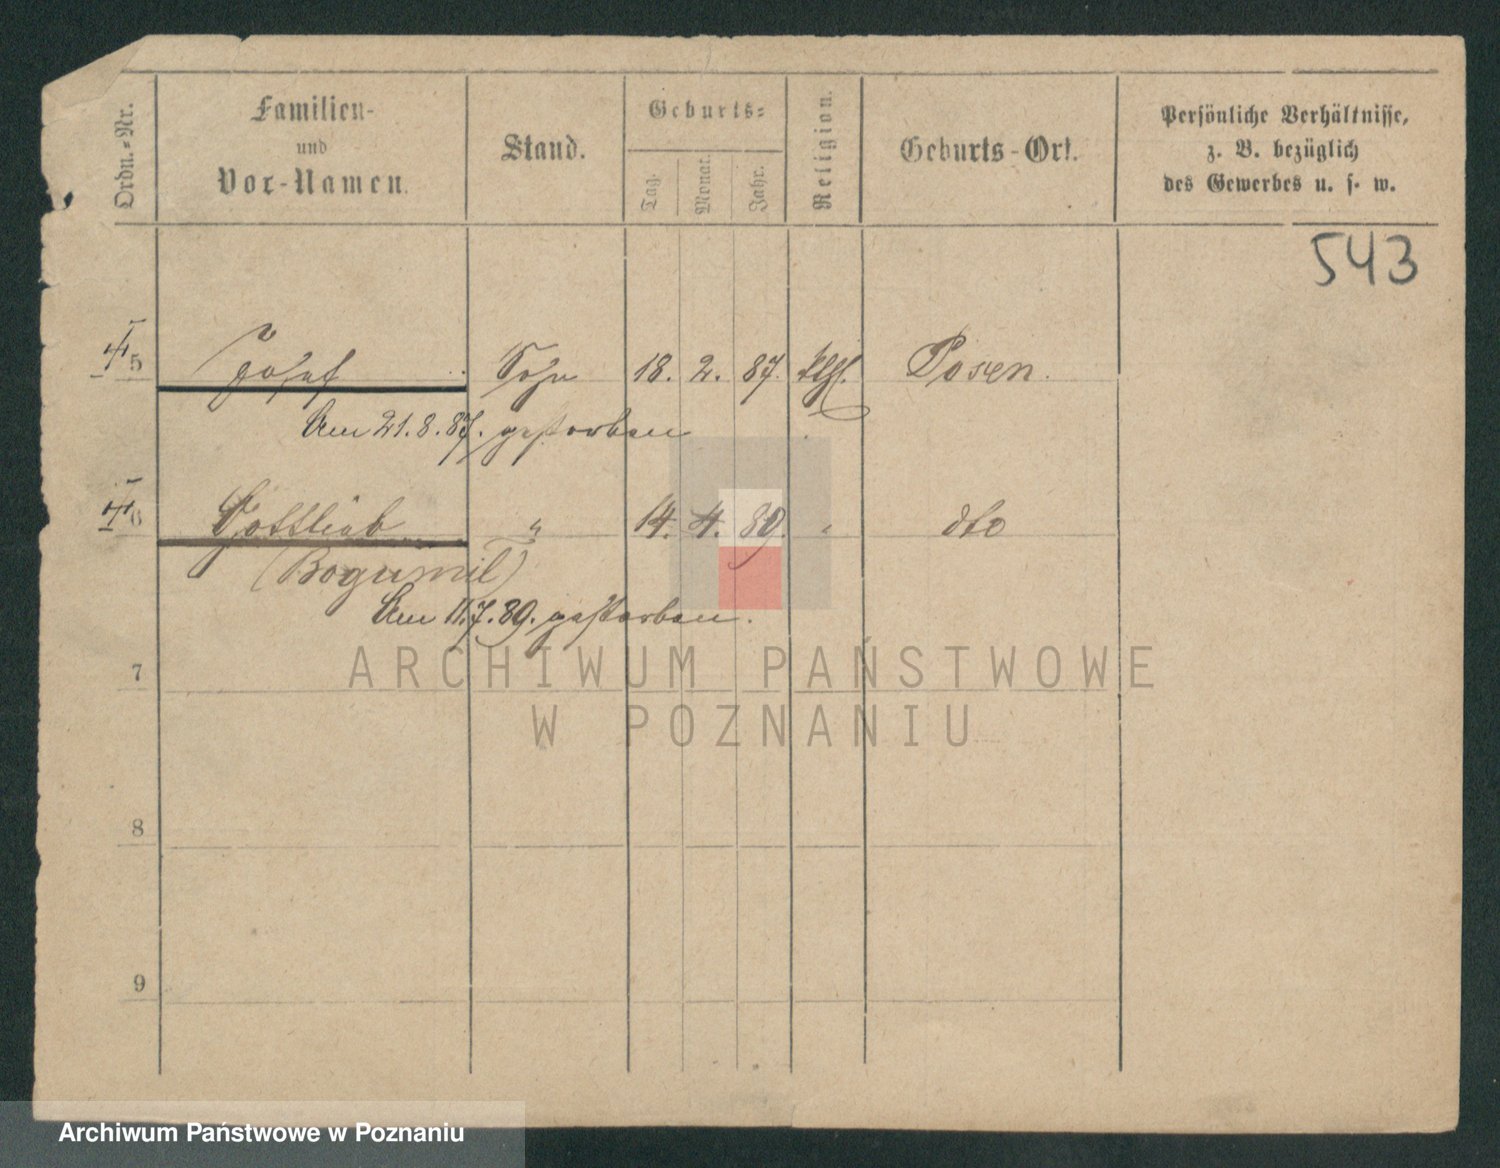 Ordn.-Nr.
Familien-
und
Vor-Namen.
Stand.
Geburts-
Tag.
Monat.
Jahr.
Religion.
Geburts-Ort.
Persönliche Verhältnisse,
z. B. bezüglich
des Gewerbes u. s. w.
543
5 Josef Sohn 18. 2. 87. kth. Posen.
Am 21.8.87. gestorben
6 Gottlieb " 14. 4. 89. " dto
(Bogumil)
Am 11.7.89. gestorben.
7
8
9
ARCHIWUM PAŃSTWOWE
W POZNANIU
Archiwum Państwowe w Poznaniu